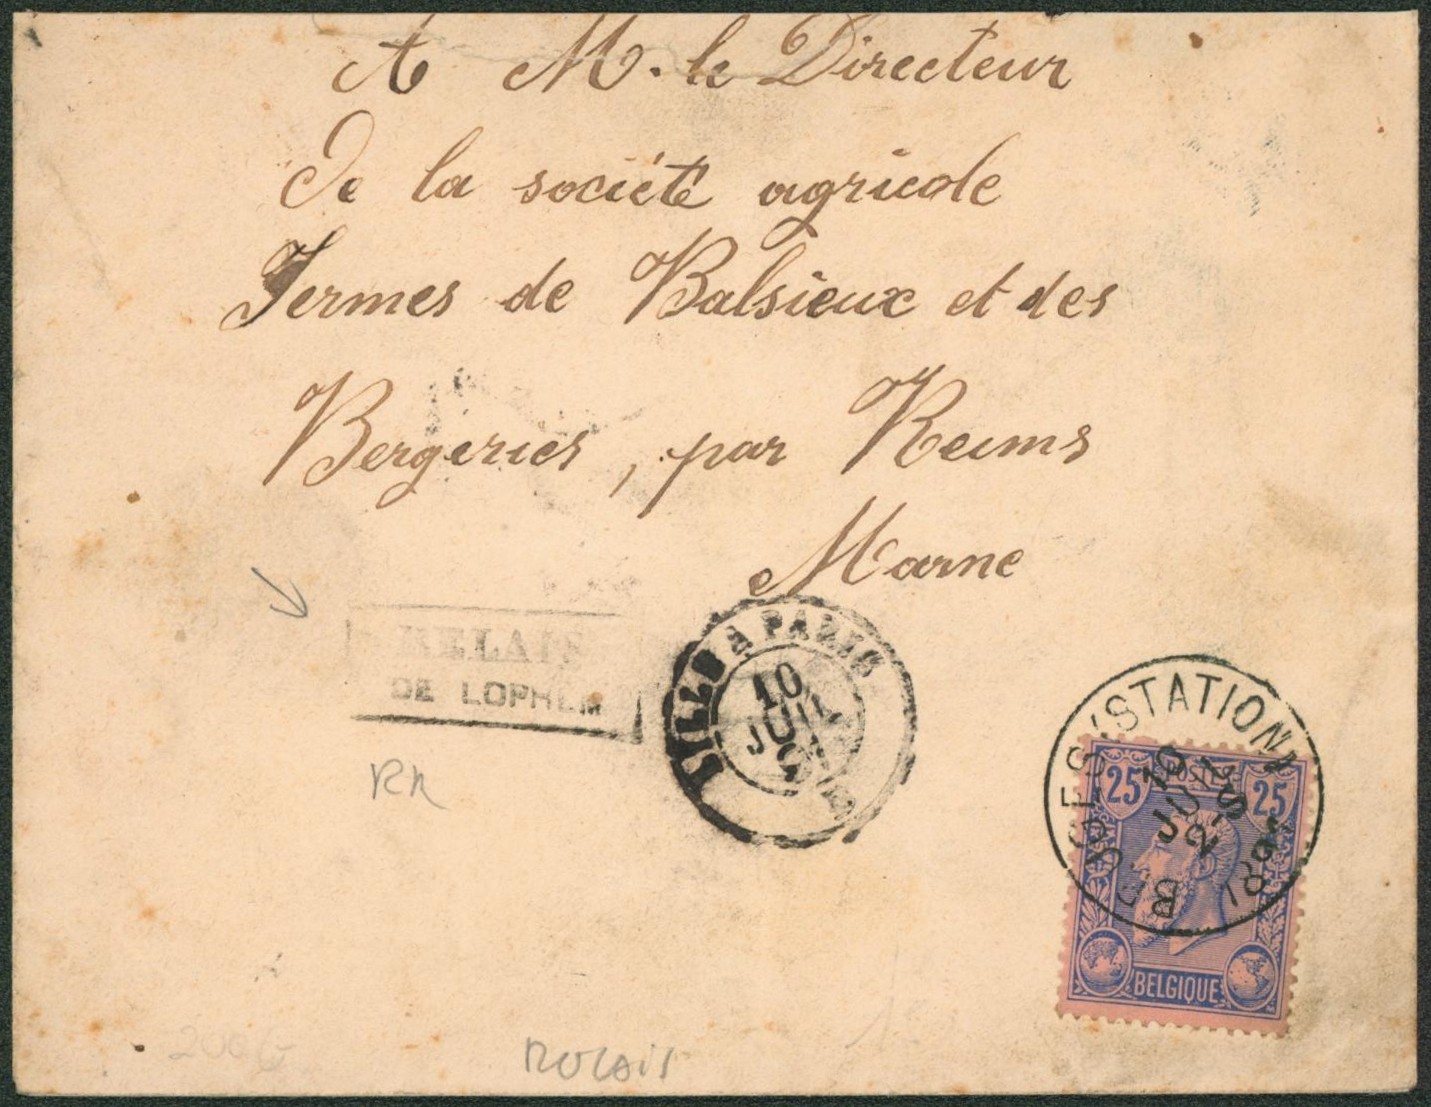 A M. le Directeur
De la société agricole
Fermes de Balsieux et des
Bergeries, par Reims
Marne
RELAIS
DE LOPHEM
LILLE A PARIS
10
JUIL
RR
BRUGES (STATION)
10
JUIL
189
25 POSTES 25
BELGIQUE
200 G
RELAIS